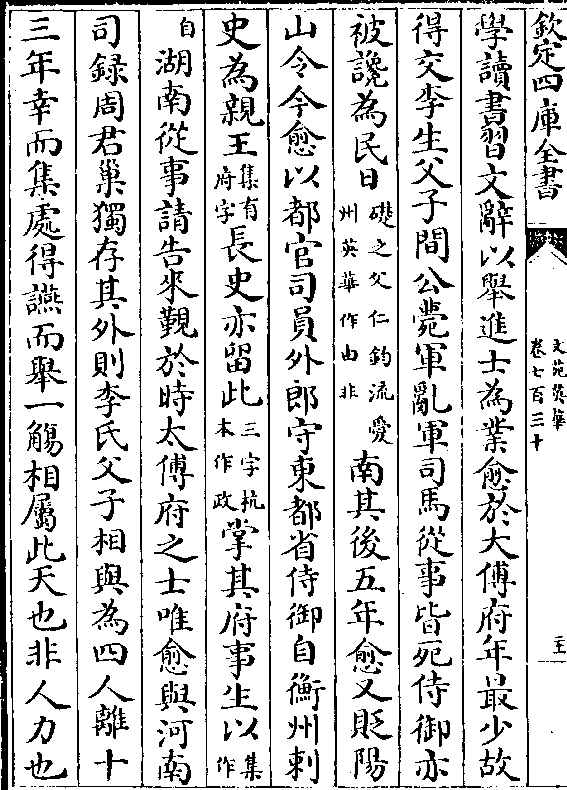 欽定四庫全書
文苑英華
卷七百三十
主
學讀書習文辭以舉進士為業愈於大傅府年最少故
得交李生父子間公薨軍亂軍司馬從事皆死侍御亦
被讒為民日礎之父仁鈞流愛州英華作由非南其後五年愈又貶陽
山令今愈以都官司員外郎守東都省侍御自衡州刺
史為親王集有府字長史亦留此三字杭本作政掌其府事生以集作
自湖南從事請告來覲於時太傅府之士唯愈與河南
司錄周君巢獨存其外則李氏父子相與為四人離十
三年幸而集處得讌而舉一觴相屬此天也非人力也